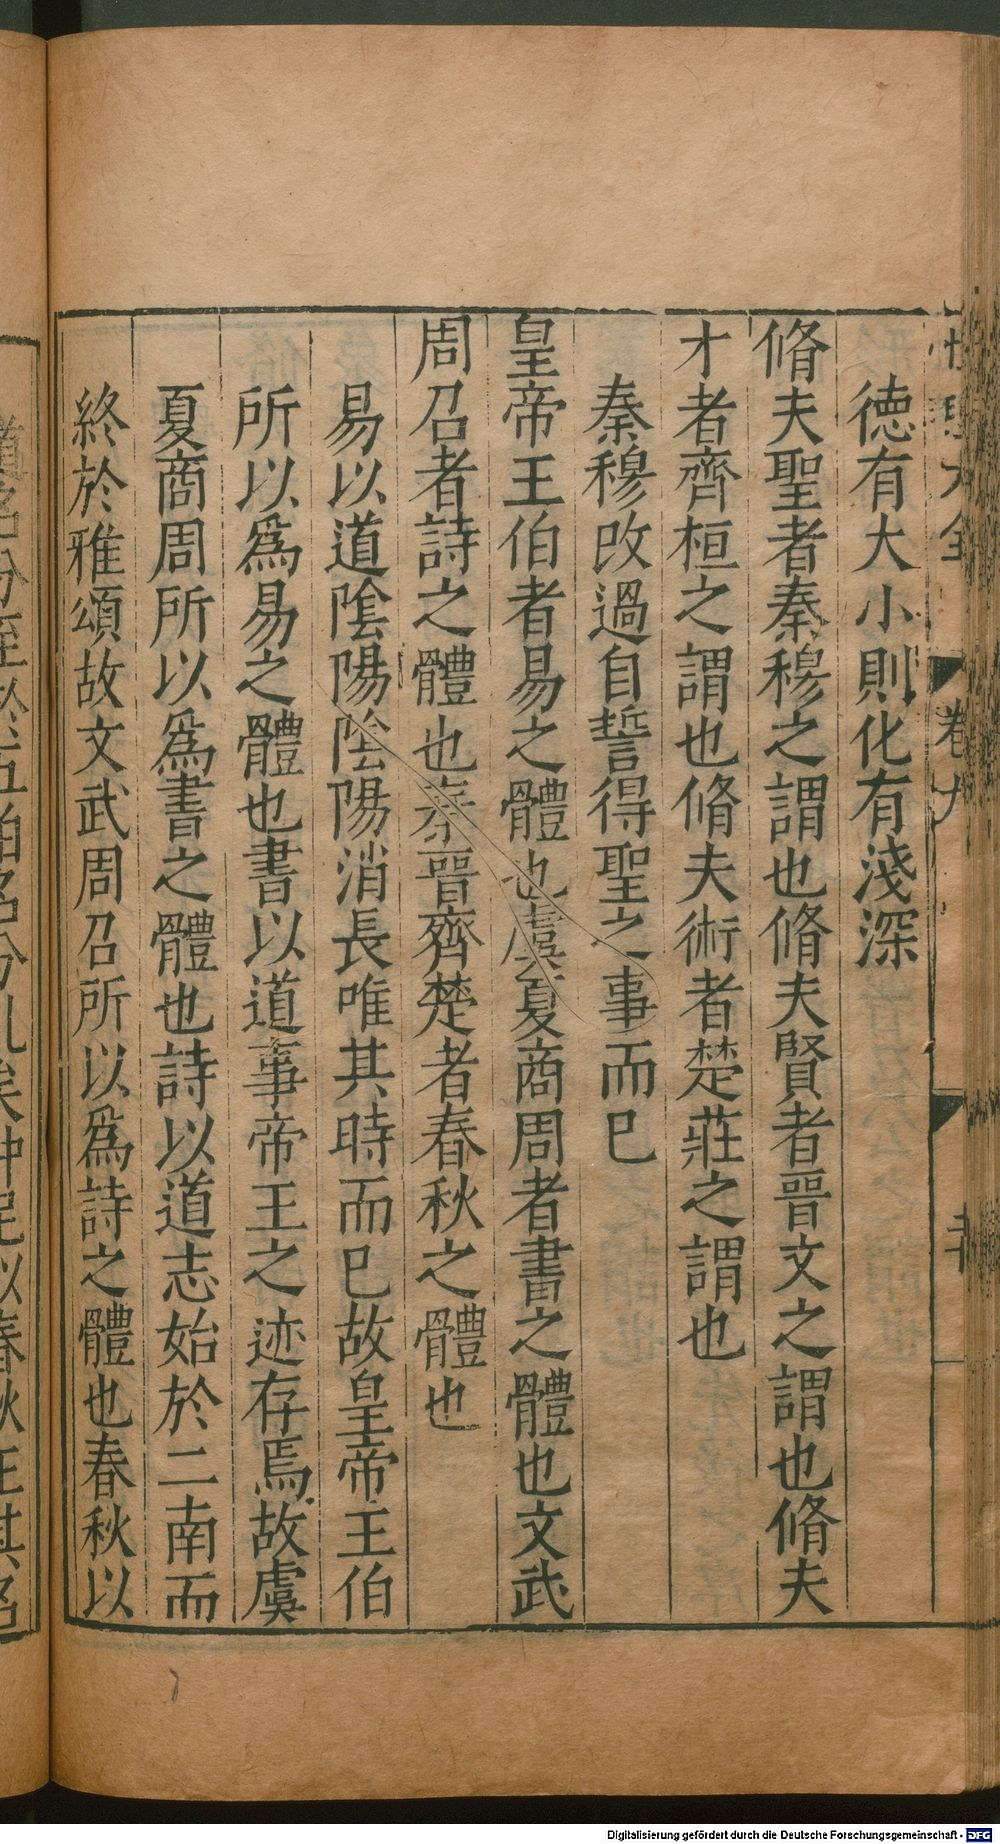 性理大全 卷九
德有大小則化有淺深
脩夫聖者秦穆之謂也脩夫賢者晉文之謂也脩夫
才者齊桓之謂也脩夫術者楚莊之謂也
秦穆改過自誓得聖之事而已
皇帝王伯者易之體也虞夏商周者書之體也文武
周召者詩之體也秦晉齊楚者春秋之體也
易以道陰陽陰陽消長唯其時而已故皇帝王伯
所以爲易之體也書以道事帝王之迹存焉故虞
夏商周所以爲書之體也詩以道志始於二南而
終於雅頌故文武周召所以爲詩之體也春秋以
道名分至於五伯名分亂矣仲尼以春秋正其名
Digitalisierung gefördert durch die Deutsche Forschungsgemeinschaft - DFG